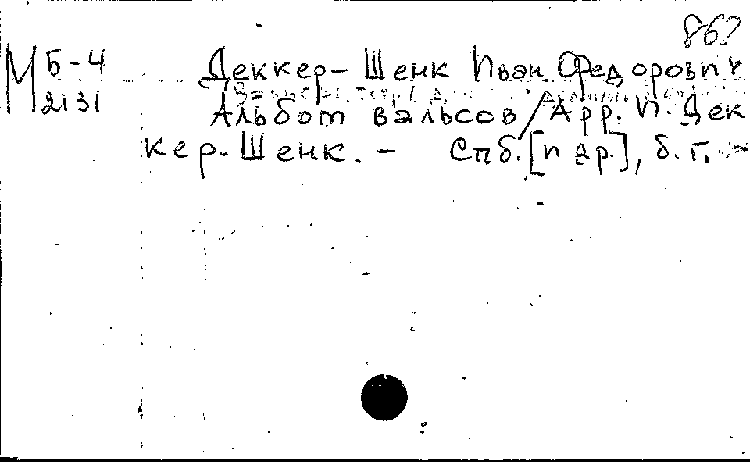 862
М Б-4 Деккер-Шенк Иван Федорович
2131 Альбом вальсов / Арр. И. Дек
кер-Шенк. - Спб. [и др.], б.г. -